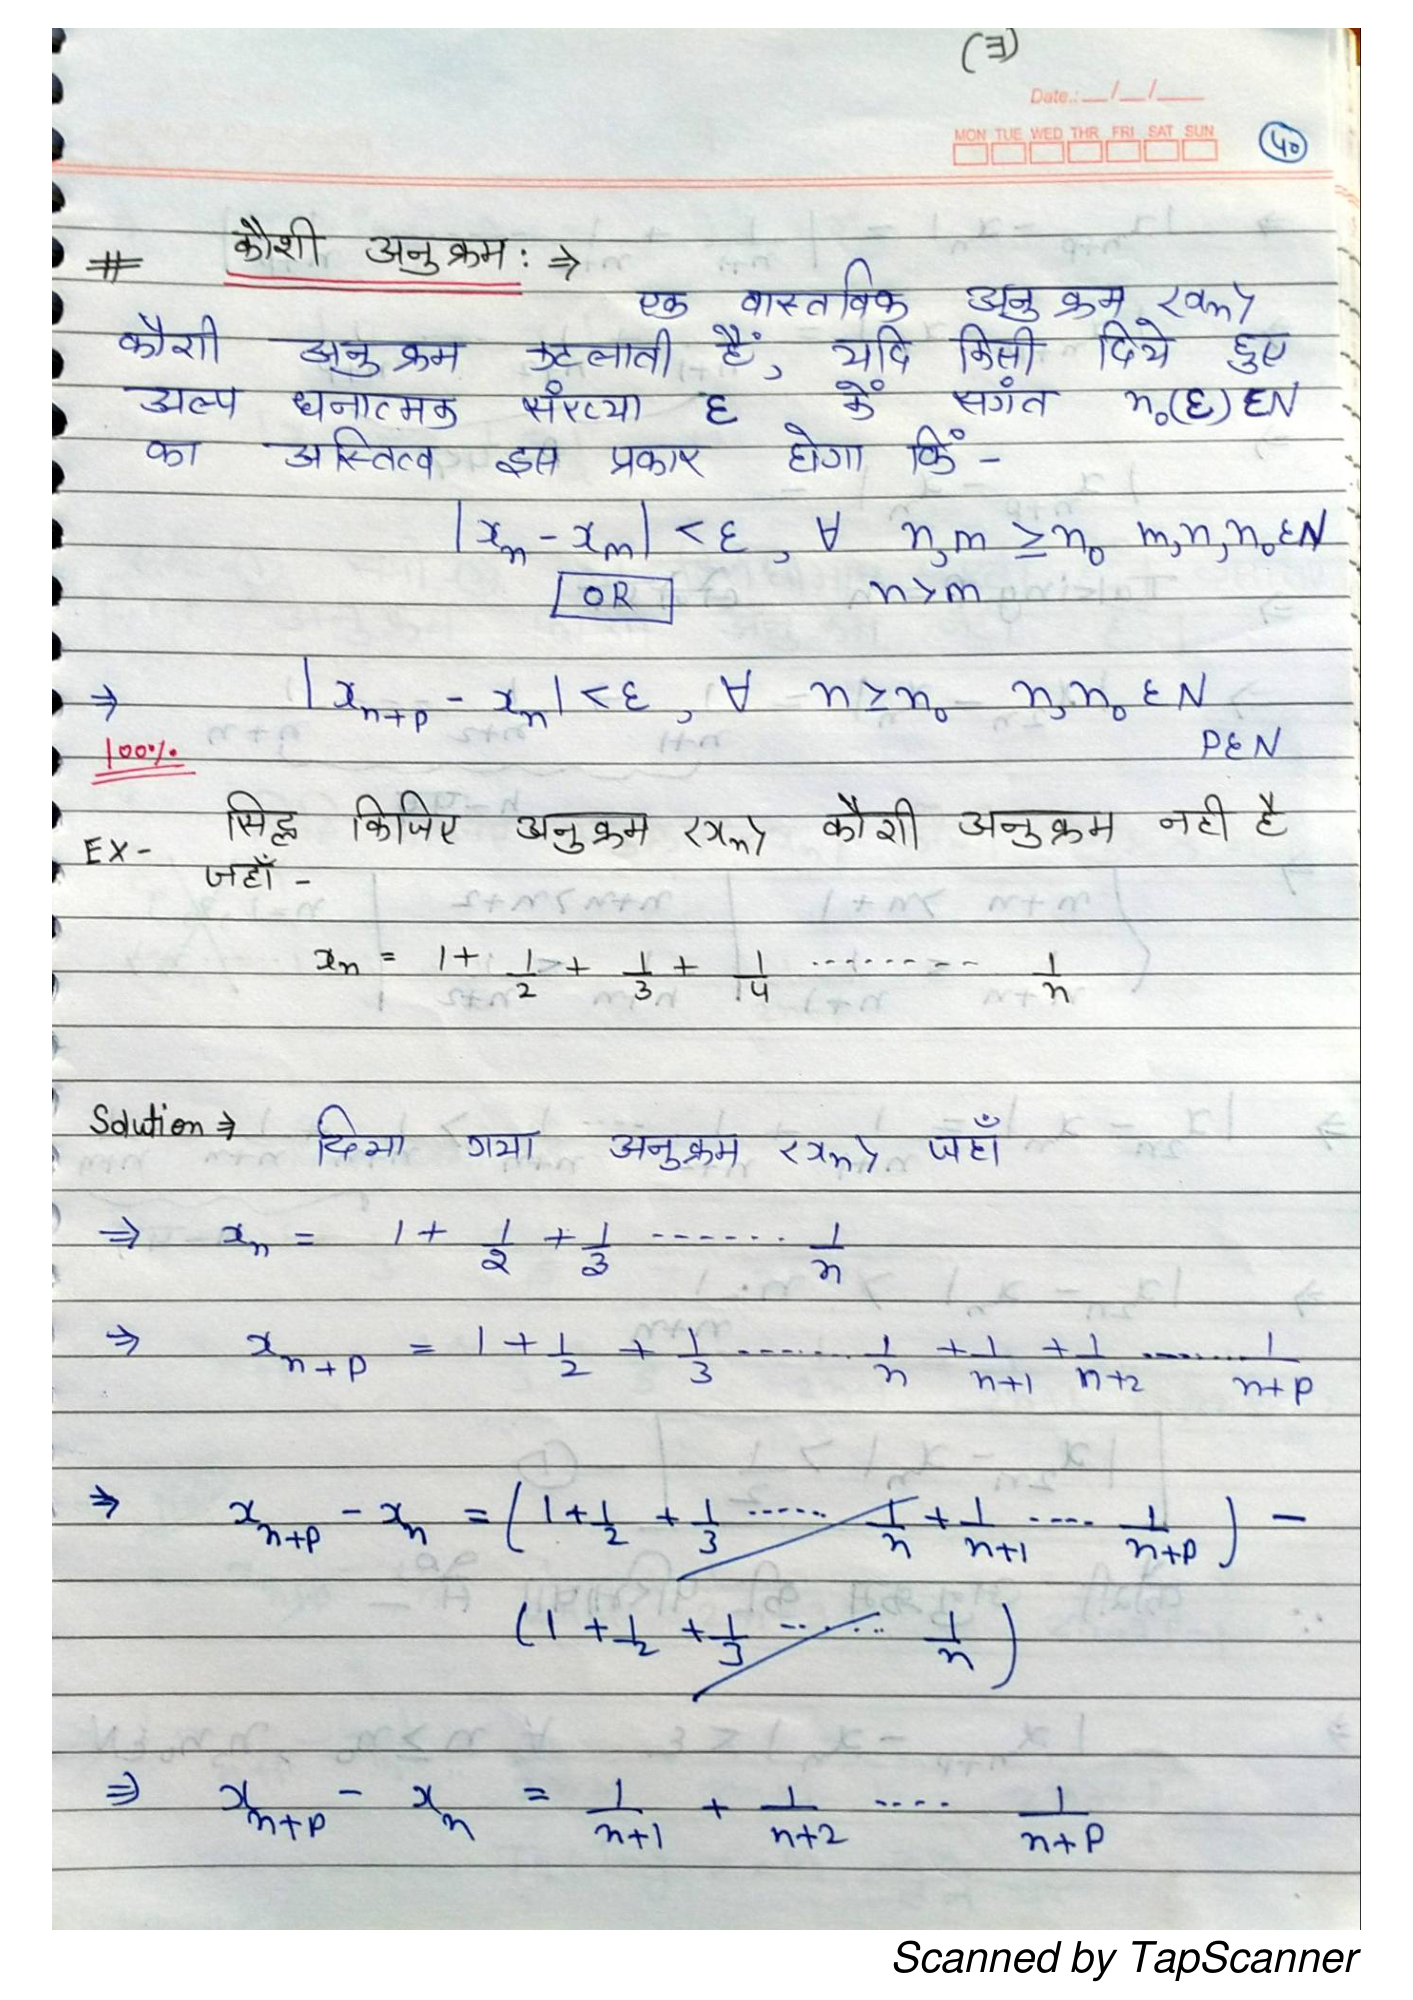 (3)
Date.:__/__/____
MON TUE WED THR FRI SAT SUN
40
# कौशी अनुक्रम : ⇒
एक वास्तविक अनुक्रम <an>
कौशी अनुक्रम कहलाती हैं, यदि किसी दिये हुए
अल्प धनात्मक संख्या ε कें सगंत n₀(ε) εN
का अस्तित्व इस प्रकार होगा किं -
|xₙ - xₘ| < ε, ∀ n,m ≥ n₀ m,n,n₀ εN
OR n>m
⇒ |xₙ₊ₚ - xₙ| < ε, ∀ n≥n₀ n,n₀ εN
100% PεN
EX- सिद्ध किजिए अनुक्रम <xₙ> कौशी अनुक्रम नही है
जहाँ -
xₙ = 1 + 1/2 + 1/3 + 1/4 ......... 1/n
Solution ⇒ दिया गया अनुक्रम <xₙ> जहाँ
⇒ xₙ = 1 + 1/2 + 1/3 ........ 1/n
⇒ xₙ₊ₚ = 1 + 1/2 + 1/3 ........ 1/n + 1/n+1 + 1/n+2 ........ 1/n+p
⇒ xₙ₊ₚ - xₙ = (1 + 1/2 + 1/3 ...... 1/n + 1/n+1 .... 1/n+p) -
(1 + 1/2 + 1/3 ...... 1/n)
⇒ xₙ₊ₚ - xₙ = 1/n+1 + 1/n+2 .... 1/n+p
Scanned by TapScanner